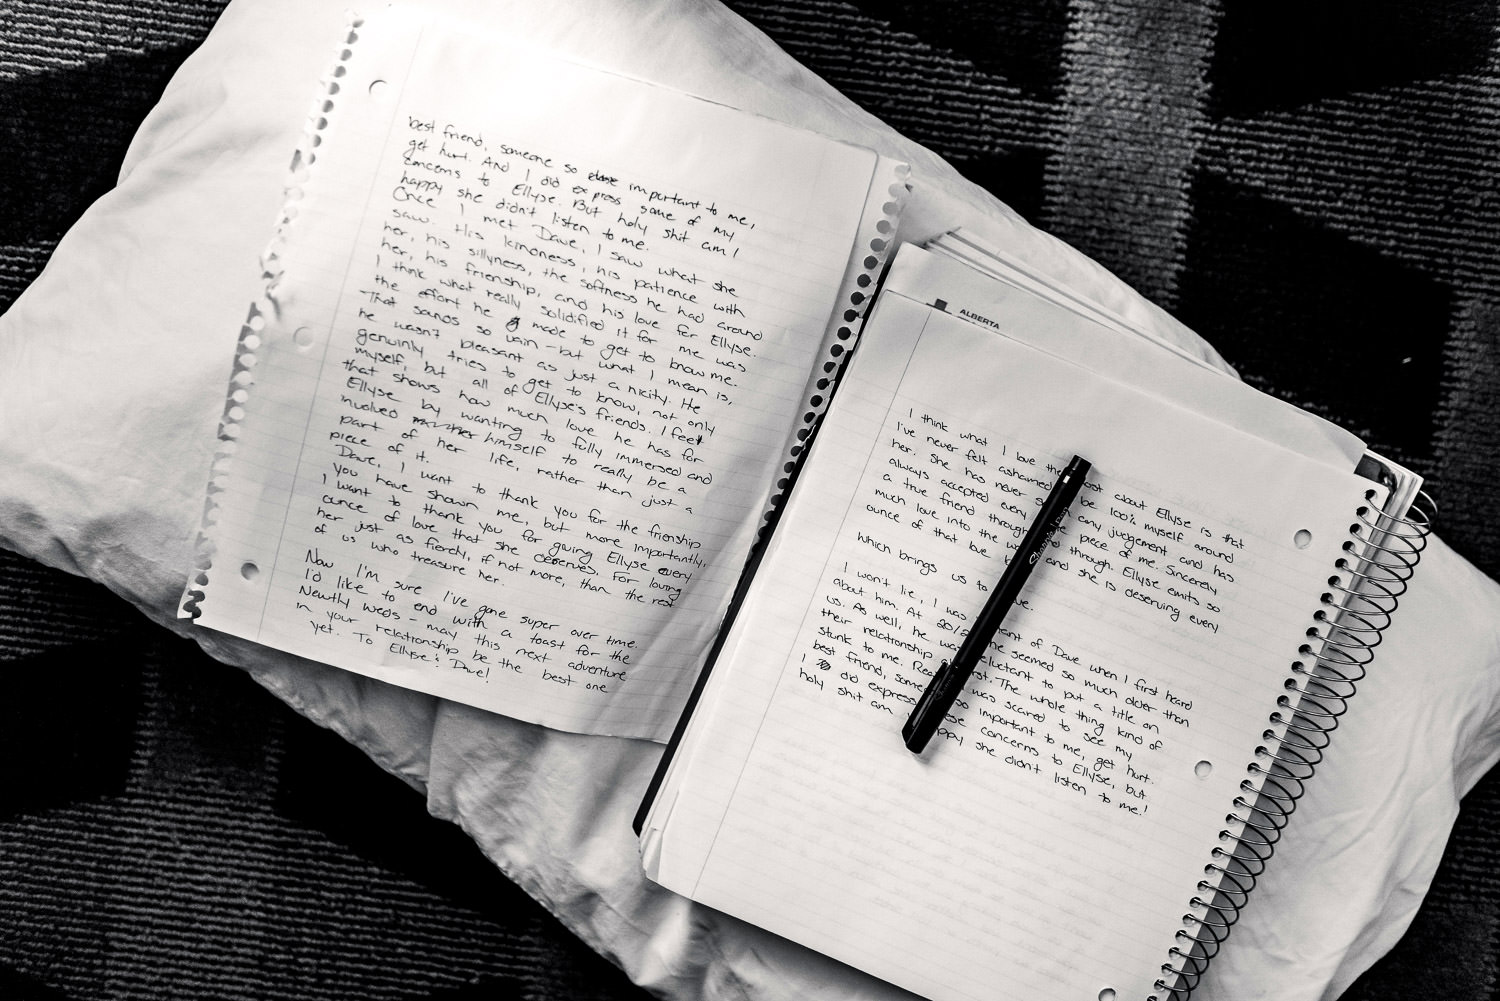 best friend, someone so close important to me,
get hurt. And I did express some of my
concerns to Ellyse. But holy shit am I
happy she didn't listen to me.
Once I met Dave, I saw what she
saw. His kindness, his patience with
her, his sillyness, the softness he had around
her, his friendship, and his love for Ellyse.
I think what really solidified it for me was
the effort he made to get to know me.
That sounds so vain - but what I mean is,
he wasn't pleasant as just a nicity. He
genuinly tries to get to know, not only
myself, but all of Ellyse's friends. I feel
that shows how much love he has for
Ellyse by wanting to fully immersed and
involved himself to really be a
part of her life, rather than just a
piece of it.
Dave, I want to thank you for the friendship
you have shown me, but more importantly,
I want to thank you for giving Ellyse every
ounce of love that she deserves. For loving
her just as fiercly, if not more, than the rest
of us who treasure her.
Now I'm sure I've gone super over time.
I'd like to end with a toast for the
Newlly weds - may this next adventure
in your relationship be the best one
yet. To Ellyse & Dave!
ALBERTA
I think what I love the most about Ellyse is that
I've never felt ashamed be 100% myself around
her. She has never any judgement and has
always accepted every piece of me. Sincerely
a true friend through through. Ellyse emits so
much love into the and she is deserving every
ounce of that love
Which brings us to
I won't lie, I was of Dave when I first heard
about him. At he seemed so much older than
us. As well, he was reluctant to put a title on
their relationship The whole thing kind of
stunk to me. was scared to see my
best friend, so important to me, get hurt.
I did express concerns to Ellyse, but
holy shit am she didn't listen to me!
Sharpie